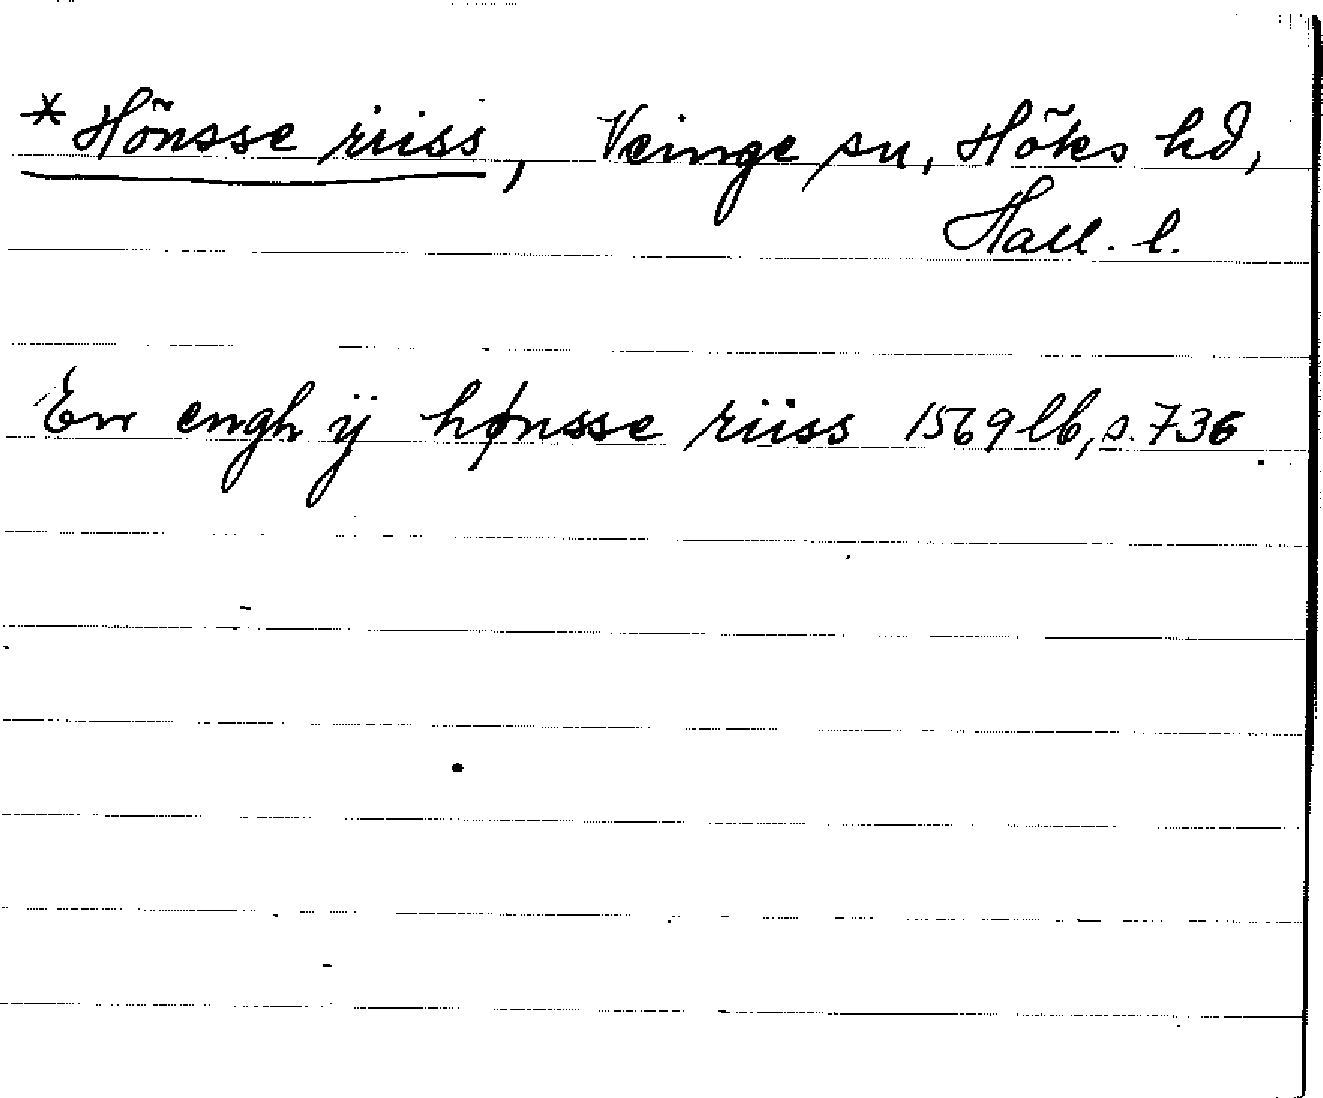 *Hönsse riiss, Veinge sn, Höks hd,
Hall. l.
En engh ÿ hønsse riiss 1569 lb, s. 736